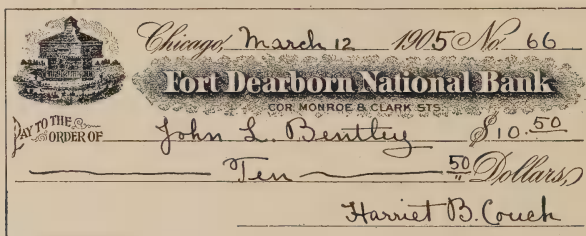 Chicago, March 12 1905 No. 66
Fort Dearborn National Bank
COR. MONROE & CLARK STS.
PAY TO THE ORDER OF John L. Bentley $10.50
Ten 50/" Dollars,
Harriet B. Couch